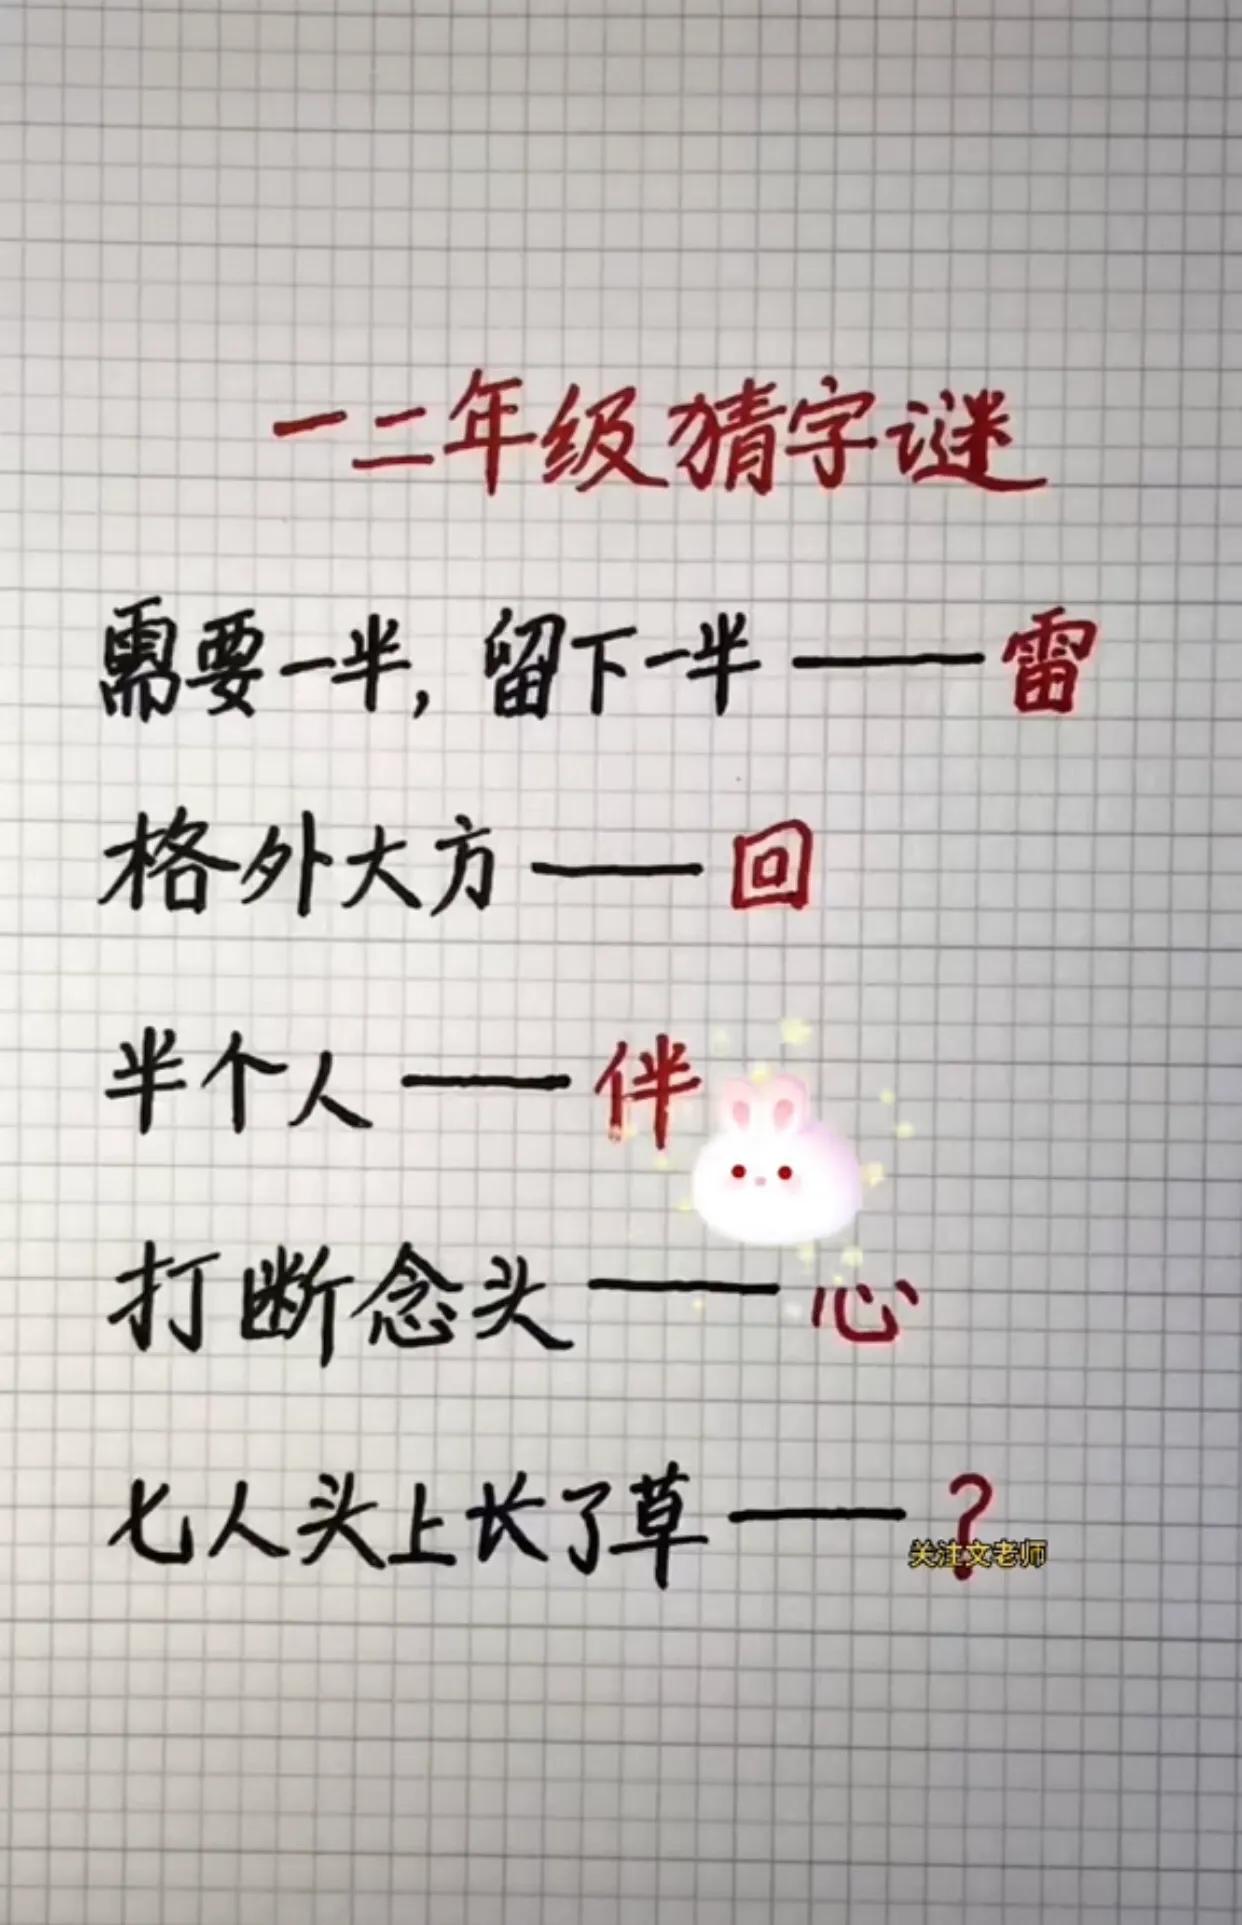 一二年级猜字谜
需要一半，留下一半——雷
格外大方——回
半个人——伴
打断念头——心
七人头上长了草——？
关注文老师